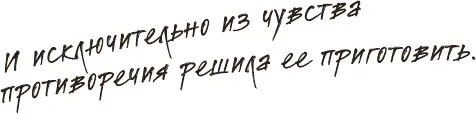 и исключительно из чувства
противоречия решила ее приготовить.